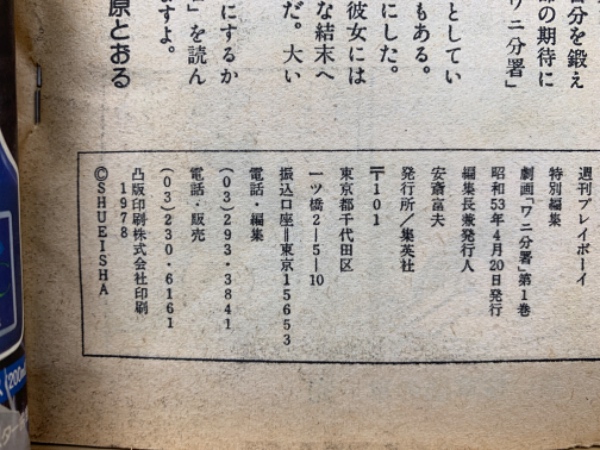 自分を鍛え
の期待に
ワニ分署」
としてい
もある。
にした。
彼女には
な結末へ
だ。大い
にするか
」を読ん
ますよ。
原とおる
週刊プレイボーイ
特別編集
劇画「ワニ分署」第1巻
昭和53年4月20日発行
編集長兼発行人
安斎富夫
発行所／集英社
〒101
東京都千代田区
一ツ橋2―5―10
振込口座＝東京15653
電話・編集
(03)293・3841
電話・販売
(03)230・6161
凸版印刷株式会社印刷
1978
©SHUEISHA
200